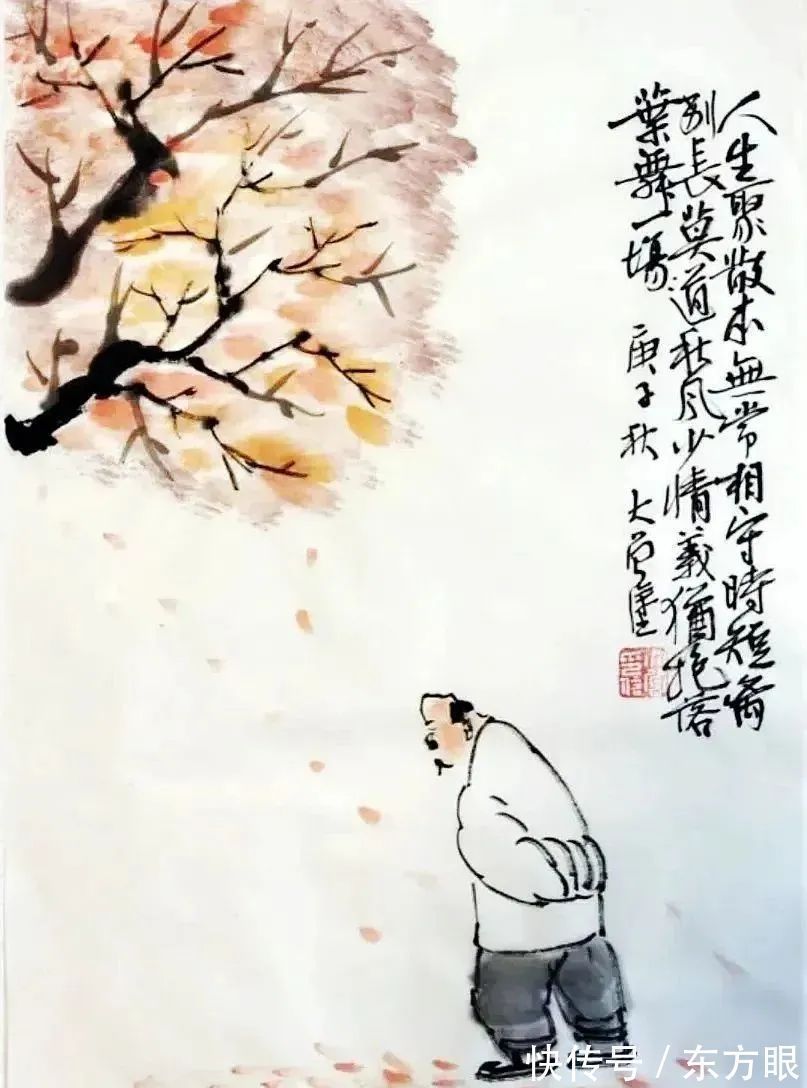 人生聚散本無常相守時短离
别長莫道秋风少情義猶抱落
葉舞一場 庚子秋 大
快传号 / 东方眼